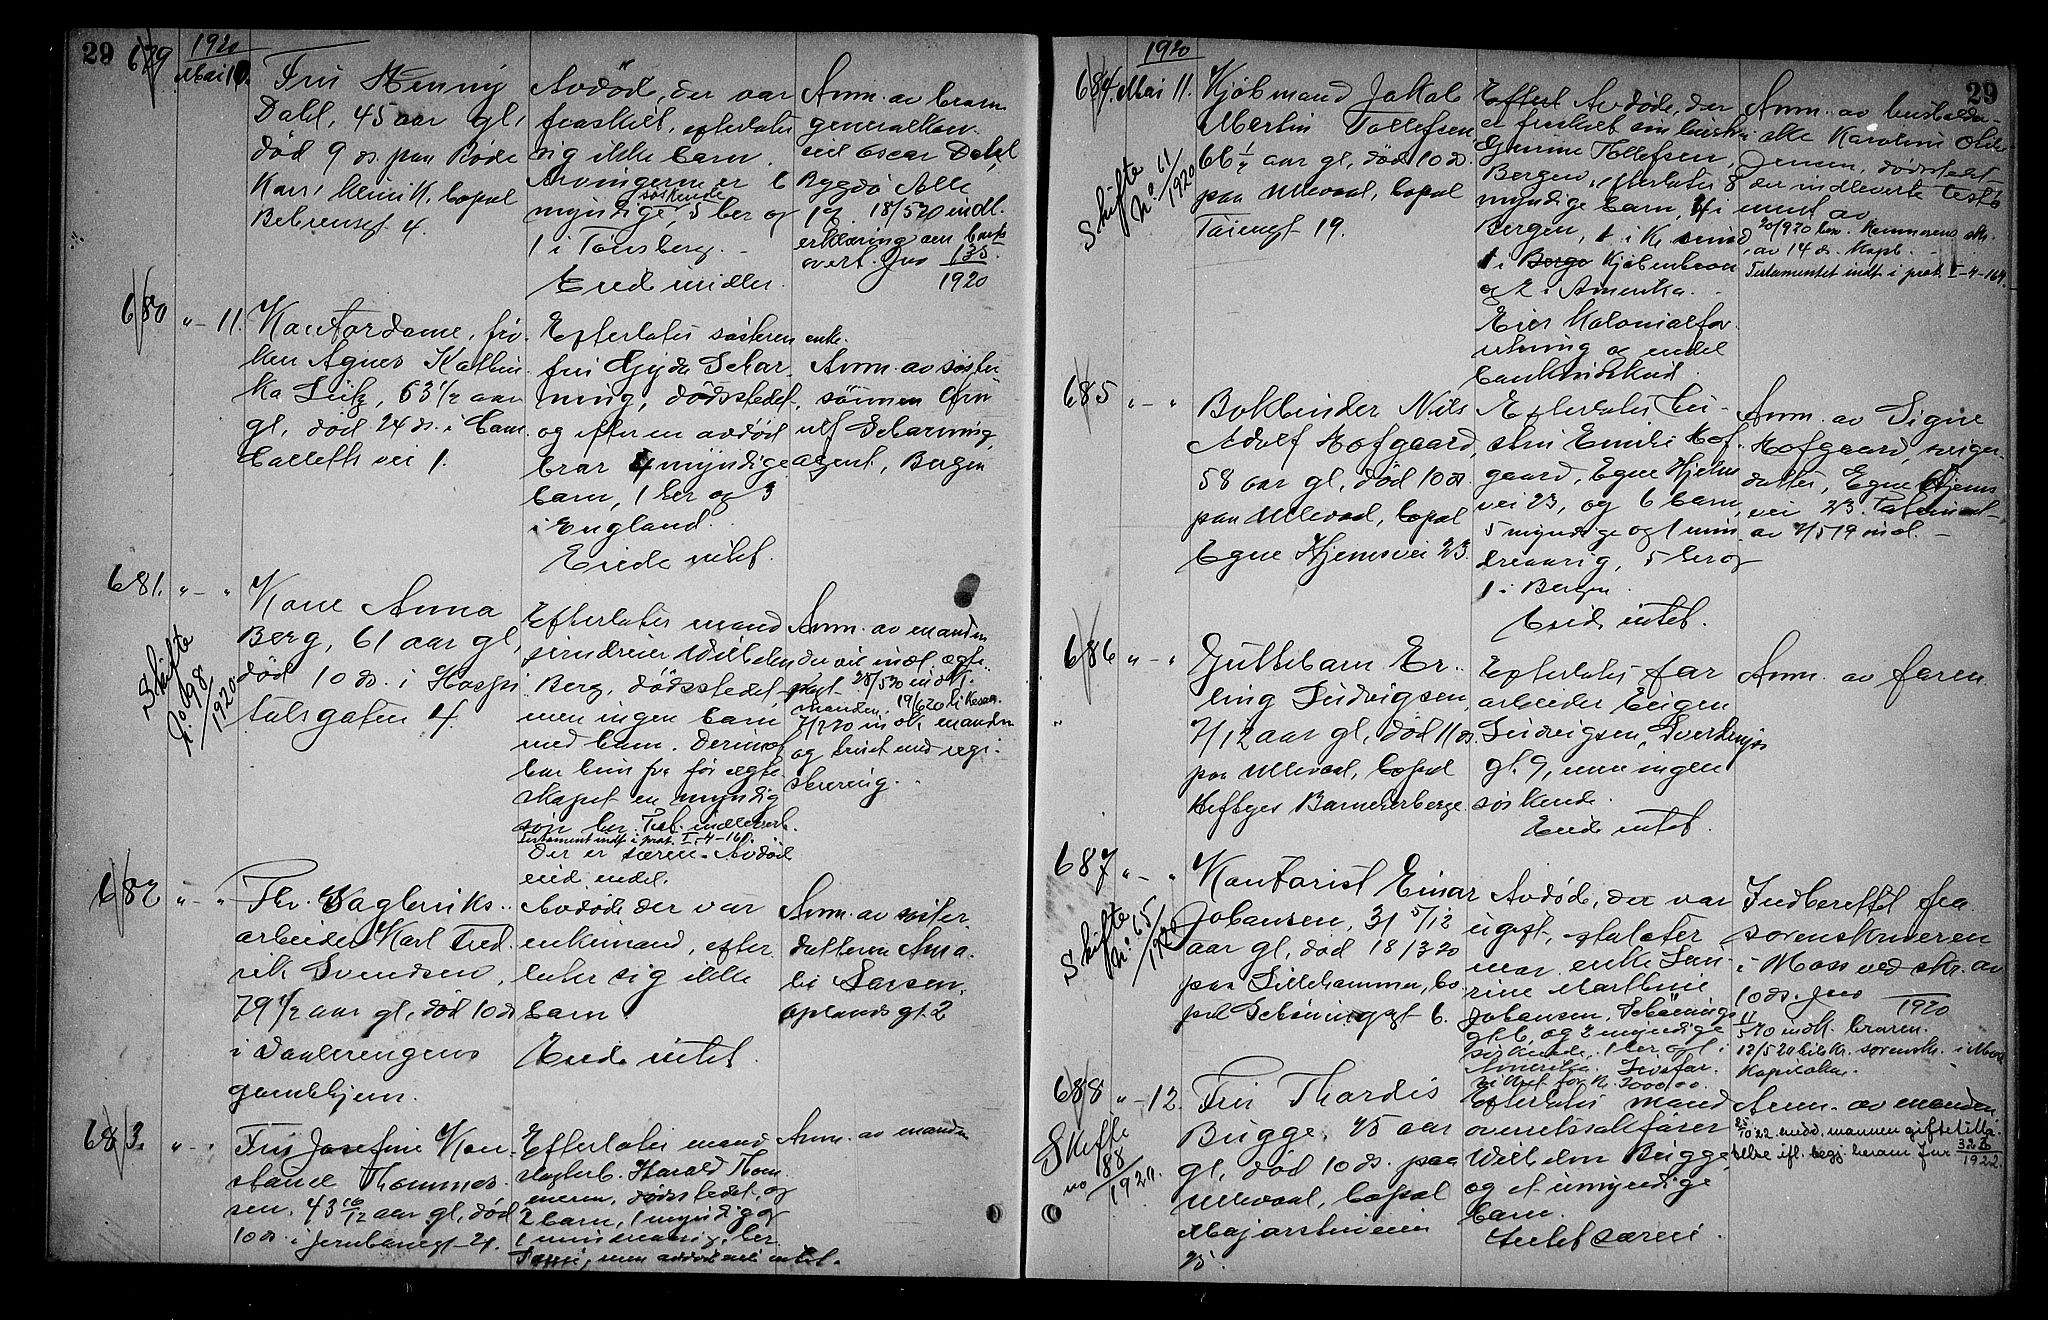 29 679 1920
Mai 10. Fru Henny
Dahl, 45 aar gl,
død 9 ds. paa Røde
Kors' klinik, bopæl
Behrensgt. 4.
Avdøde, der var
fraskilt, efterlater
sig ikke barn.
Arvingerne er 6
myndige søskende, 5 her og
1 i Tønsberg. -
Eied midler.
Anm. av brorn
generalkon-
sul Oscar Dahl,
Bygdø Alle
19. 18/5 20 indl.
erklæring om
overt. Jno 135
1920
680 " - 11. Kontordame, frø-
ken Agnes Kathin-
ka Lutz, 63 1/2 aar
gl, død 24 ds. i Cam.
Colletts vei 1.
Efterlater søsteren enke-
fru Gyda Schar-
ning, dødsstedet,
og efter en avdød
bror 4 myndige
barn, 1 her og 3
i England.
Eiede intet.
Anm. av søster-
sønnen
ulf Scharning,
agent, Bergen
681. " - " Kone Anna
Berg, 61 aar gl,
død 10 ds. i Hospi-
talsgaten 4.
Skifte
No. 98
/1920.
Efterlater mand
Wilhelm
Berg, dødsstedet,
men ingen barn
med ham. Derimot
har hun fra før egte-
skapet en myndig
søn her. Test. indlevert.
Testament indt. i prot. I-4-161.
Der er særeie. Avdød
eied endel.
Anm. av manden
der vil indl. egte-
pagt 28/5 20 indk.
manden. 19/6 20
7/7 20 indk. manden
og brevet med regi-
strering.
682 " - " Fhv. Vagtmks.
arbeider Karl Fred-
rik Svendsen,
79 1/2 aar gl, død 10 ds
i Vaalerengens
gamlehjem.
Avdøde, der var
enkemand, efter-
later sig ikke
barn.
Eiede intet.
Anm. av søster-
datteren Ama-
lie Larsen,
Oplandsgt. 2
683. " - " Fru Josefine Kon-
stance Thommes-
sen, 43 10/12 aar gl, død
10 ds. i Jernbanegt. 21.
Efterlater mand
Harald Thom-
mesen, dødsstedet, og
2 barn, 1 myndig og
1 mindreaarig, her
men avdød eied intet.
Anm. av manden
29
1920
684. Mai 11. Kjøbmand Jakob
Martin Tollefsen,
66 1/4 aar gl, død 10 ds.
paa Ulleval, bopæl
Tøiengt 19.
Skifte
No. 11
/1920
Efterl Avdøde, der
er fraskilt sin hustru
Tollefsen,
Bergen, efterlater 8
myndige barn, 4 i
Bergen, 1 i Kr.sund,
1 i Berge Kjøbenhavn
og 2 i Amerika.
Eier kolonialfor-
retning og endel
bankindskud.
Anm. av husholder-
ske Karoline
Jensen, dødsstedet
der indleverte testa-
ment av
av 14 ds. Kapt.
Testamentet indt i prot. I-4-164.
685 " - " Bokbinder Nils
Adolf Hofgaard,
58 aar gl, død 10 ds
paa Ulleval, bopæl
Egne Hjemsvei 23.
Efterlater hu-
stru Emilie Hof-
gaard, Egne Hjems
vei 23, og 6 barn,
5 myndige og 1 min-
dreaarig, 5 her og
1 i Bergen.
Eiede intet.
Anm. av Signe
Hofgaard, sviger-
datter, Egne Hjems
vei 23.
av 2/5 19 indl. -
686 " - " Guttebarn Er-
ling Ludvigsen,
7/12 aar gl, død 11 ds.
paa Ulleval, bopæl
Heftyes Barneherberge
Efterlater far
arbeider Eugen
Ludvigsen, Sverdrups
gt. 9, men ingen
søskende.
Eiede intet.
Anm. av faren
687 " - " Kontorist Einar
Johansen, 31 5/12
aar gl, død 18/3 20
paa Lillehammer, bo-
pæl Schøningsgt 6.
Skifte
No. 65
/1920
Avdøde, der var
ugift, efterlater
mor enke Lau-
rine Marthine
Johansen, Schønings
gt 6, og 2 myndige
søskende, 1 her og 1 i
Amerika. Livsfor-
sikret for kr. 2000.00.
Indberettet fra
sorenskriveren
i Moss ved skr. av
10 ds. Jno
1920
11/5 20 indk. broren.
12/5 20 tilskr. sorenskr. i Moss
Kapitalen.
688 " - 12. Fru Thordis
Bugge, 25 aar
gl, død 10 ds. paa
Ulleval, bopæl
Majorstuveien
25.
Skifte
no 88
/1920.
Efterlater mand
overretssakfører
Wilhelm Bugge,
og et umyndige
barn.
Antat særeie.
Anm. av manden
10/22 medd. mannen giftetilla-
telse efl. begj. herom Jnr 328
1922.